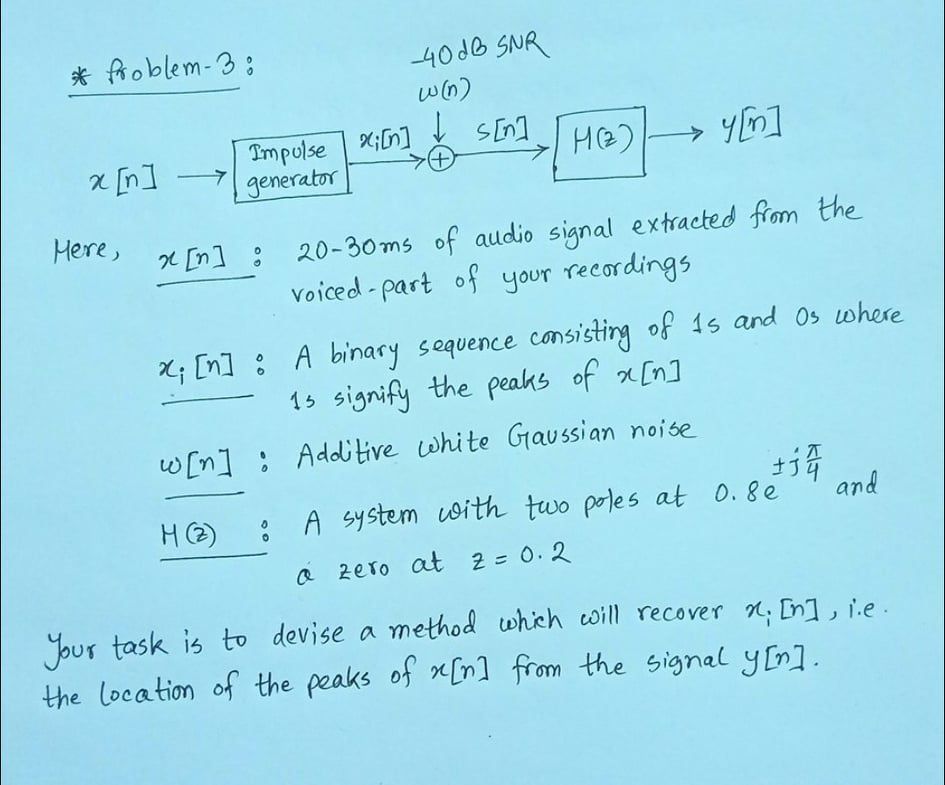 * Problem-3 :
-40dB SNR
w(n)
x[n] → Impulse generator xi[n] + s[n] H(z) → y[n]
Here, x[n] : 20-30ms of audio signal extracted from the
voiced-part of your recordings
xi[n] : A binary sequence consisting of 1s and 0s where
1s signify the peaks of x[n]
w[n] : Additive white Gaussian noise
H(z) : A system with two poles at 0.8e^±jπ/4 and
a zero at z = 0.2
Your task is to devise a method which will recover xi[n], i.e.
the location of the peaks of x[n] from the signal y[n].